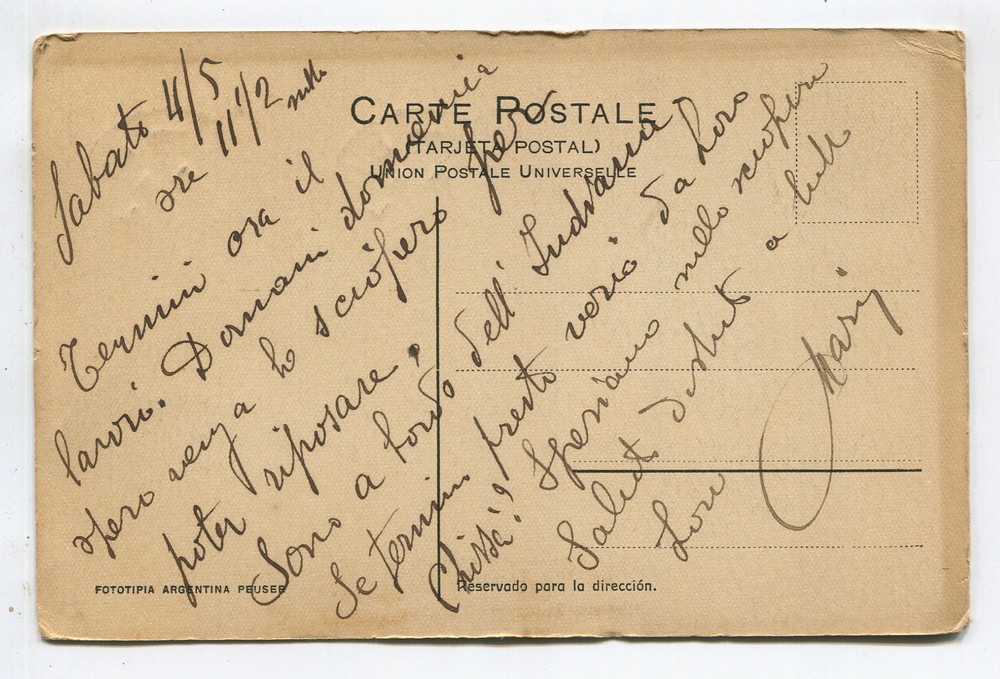 CARTE POSTALE
(TARJETA POSTAL)
UNION POSTALE UNIVERSELLE
Sabato 4/5
ore 11 1/2
Termini ora il
lavoro. Domani domenica
spero venga lo sciopero per
poter riposare.
Sono a bordo dell'
Se termino presto verrò da Loro
Chissà? Speriamo nello sciopero
Saluti distinti a tutti
Loro Mary
FOTOTIPIA ARGENTINA PEUSER
Reservado para la dirección.